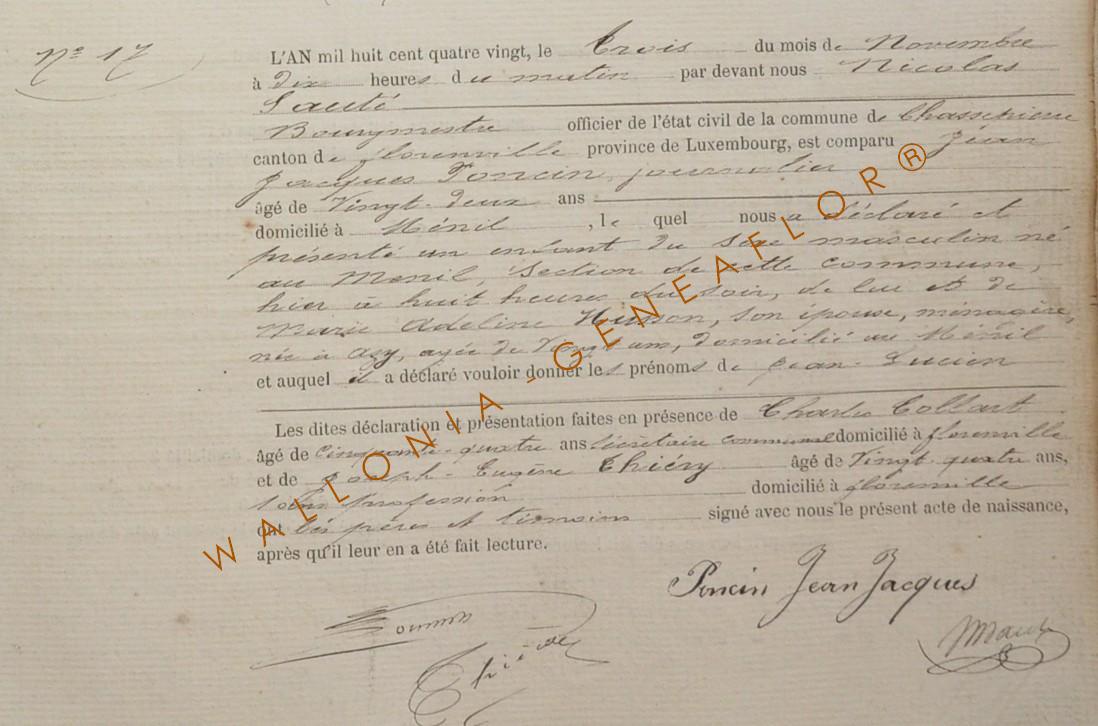 N° 17
L'AN mil huit cent quatre vingt, le trois du mois de Novembre
à dix heures du matin par devant nous Nicolas
Sauté
Bourgmestre officier de l'état civil de la commune de Chassepierre
canton de florenville province de Luxembourg, est comparu Jean
Jacques Poncin, journalier
âgé de Vingt-deux ans
domicilié à Ménil, lequel nous a déclaré et
présenté un enfant du sexe masculin né
au Menil, Section de cette commune,
hier à huit heures du soir, de lui et de
Marie Adeline Husson, son épouse, ménagère,
née à Azy, agée de Vingt un, domicilié au Ménil
et auquel il a déclaré vouloir donner les prénoms de Jean Lucien
Les dites déclaration et présentation faites en présence de Charles Collart
âgé de Cinquante-quatre ans Sécrétaire communal domicilié à florenville
et de Joseph-Eugène Thiéry âgé de Vingt quatre ans,
sans profession domicilié à florenville
ont les pères et témoins signé avec nous le présent acte de naissance,
après qu'il leur en a été fait lecture.
Poncin Jean Jacques
Thiéry
WALLONIA-GENEAFLOR®